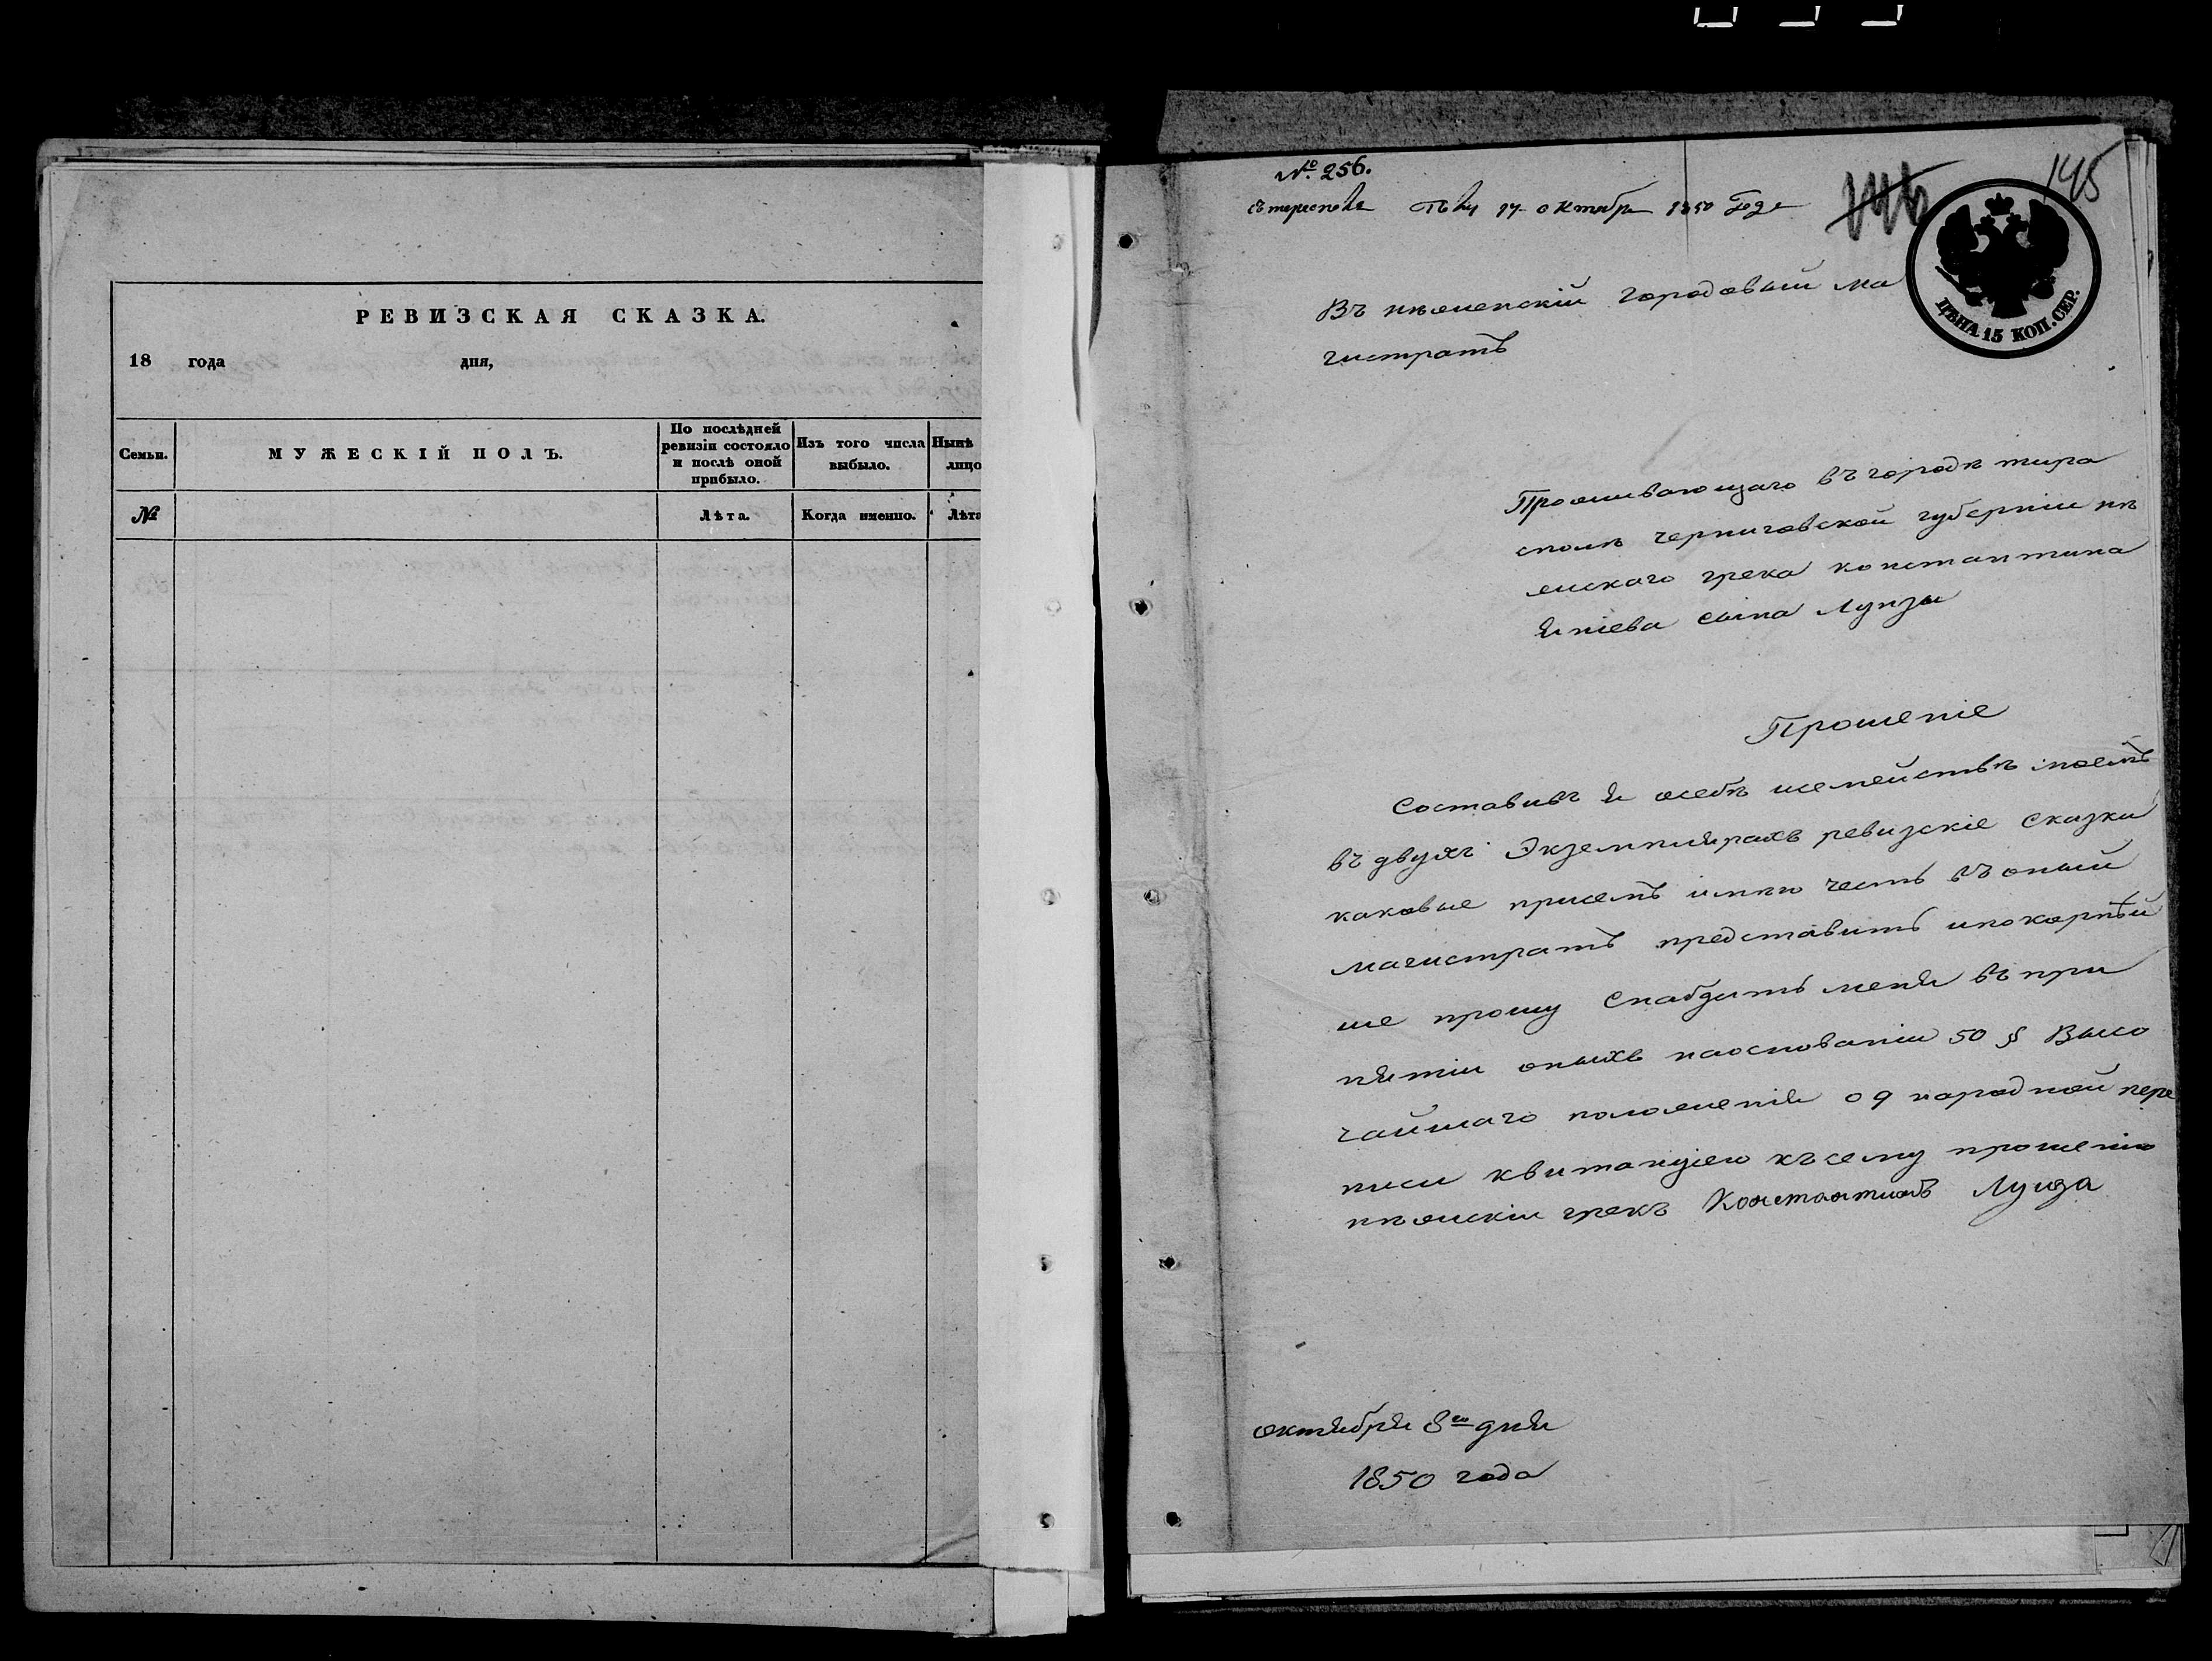 РЕВИЗСКАЯ СКАЗКА.
18 года дня,
Семьи.
МУЖЕСКІЙ ПОЛЪ.
По послѣдней
ревизіи состояло
и послѣ оной
прибыло.
Изъ того числа
выбыло.
Нынѣ
лицо
№
Лѣта.
Когда именно.
Лѣта
№ 256.
17 октябр 1850 Года
145
ЦѢНА 15 КОП. СЕР.
Въ нѣженскій городовый ма
гистратъ
Проживающаго въ городѣ тира
сполѣ черниговской губерніи нѣ
жискаго грека константина
сына Лунзы
Прошеніе
Составивъ я осебѣ исемействѣ моемъ
въ двухъ Экземплярахъ ревизскіе сказки
каковые присемъ імѣю честь въ оный
магистратъ представить ипокорнѣй
ше прошу снабдить меня въ при
нятіи оныхъ наоснованіи 50 § Высо
чайшаго положенія о 9 народной пере
писи квитанціею къ сему прошенію
нѣжискіи грекъ Константинъ Лунза
октября 8го дня
1850 года